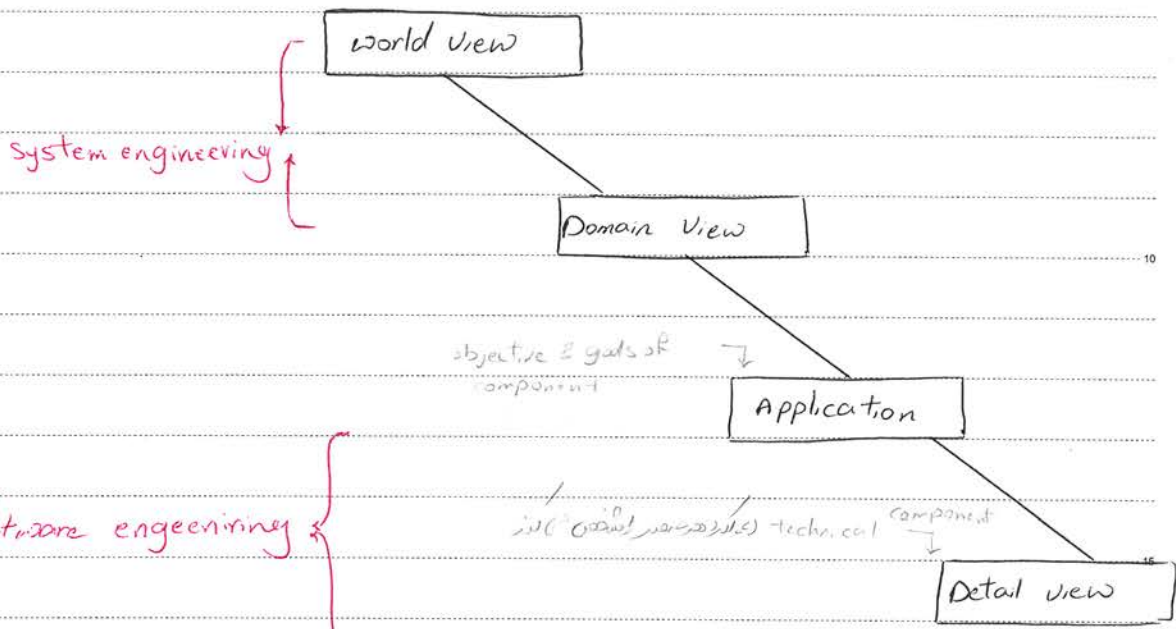 world view
System engineering
Domain View
10
objective & goals of
component
Application
tware engeenirineg
technical
component
15
Detail view